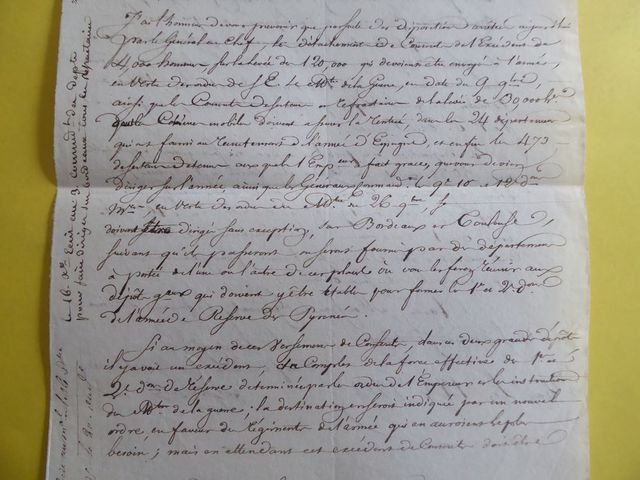 J'ai l'honneur de vous prevenir que par suite des dispositions arretées aujourd'hui
par le Général en Chef, le détachement de Conscrits de l'Excédent de
4,000 hommes, sur la levée de 120,000 qui devoient être envoyé à l'armée,
en vertu des ordres de S. E. le Mtre de la Guerre, en date du 9 9bre,
ainsi que le Conscrits deserteurs ou refractaires de la levée de 30,000 hes
que la Colonne mobile doivent assurer la rentrée dans les 24 départemens
qui ont fourni au recrutement de l'armée d'Espagne, et enfin les 473
deserteurs détenus auxquels l'Empereur fait grace, que vous deviez
diriger sur l'armée ainsi que les Généraux Commandt les 9e 10 et 12e don
Mre en vertu des ordres du Mtre du 26 9bre,
doivent être dirigés sans exception, sur Bordeaux et Toulouse,
suivant qu'ils passeront ou seront fournis par des départemens
à portée de l'une ou l'autre de ces places où vous les ferez réunir aux
dépôts gaux qui doivent y être établis pour former les 1re et 2e dons
de l'armée de Reserve des Pyrenées.
Si au moyen de ces versemens de Conscrits, dans ces deux grands dépôts
il y avait un excédent, au Complet de la force effective des 1re et
2e don de Reserve determinée par les ordres de l'Empereur et les instructions
du Mtre de la guerre; la destination en seroit indiquée par un nouvel
ordre, en faveur des Régiments de l'armée qui en auroient le plus
besoin; mais en attendant cet excédent de Conscrits doit être
Le 16 Xbre Ecrit aux 3 Commandts des depts
pour faire diriger